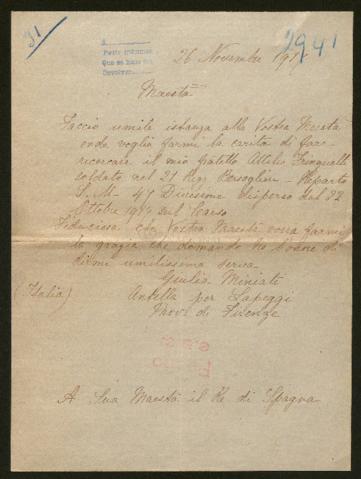 31
2941
26 Novembre 191
Maestà
Faccio umile istanza alla Vostra Maestà
onde voglia farmi la carità di far
ricercare il mio fratello Attilio
soldato nel 21 Regg. Bersaglieri - Reparto
S. M. 45 Divisione disperso dal 22
Ottobre 191 sul Carso
Fiduciosa che Vostra Maestà vorrà farmi
la grazia che domando ho l'onore di
dirmi umilissima serva
Giulia Miniati
(Italia) Antella per Lapeggi
Prov. di Firenze
A Sua Maestà il Re di Spagna